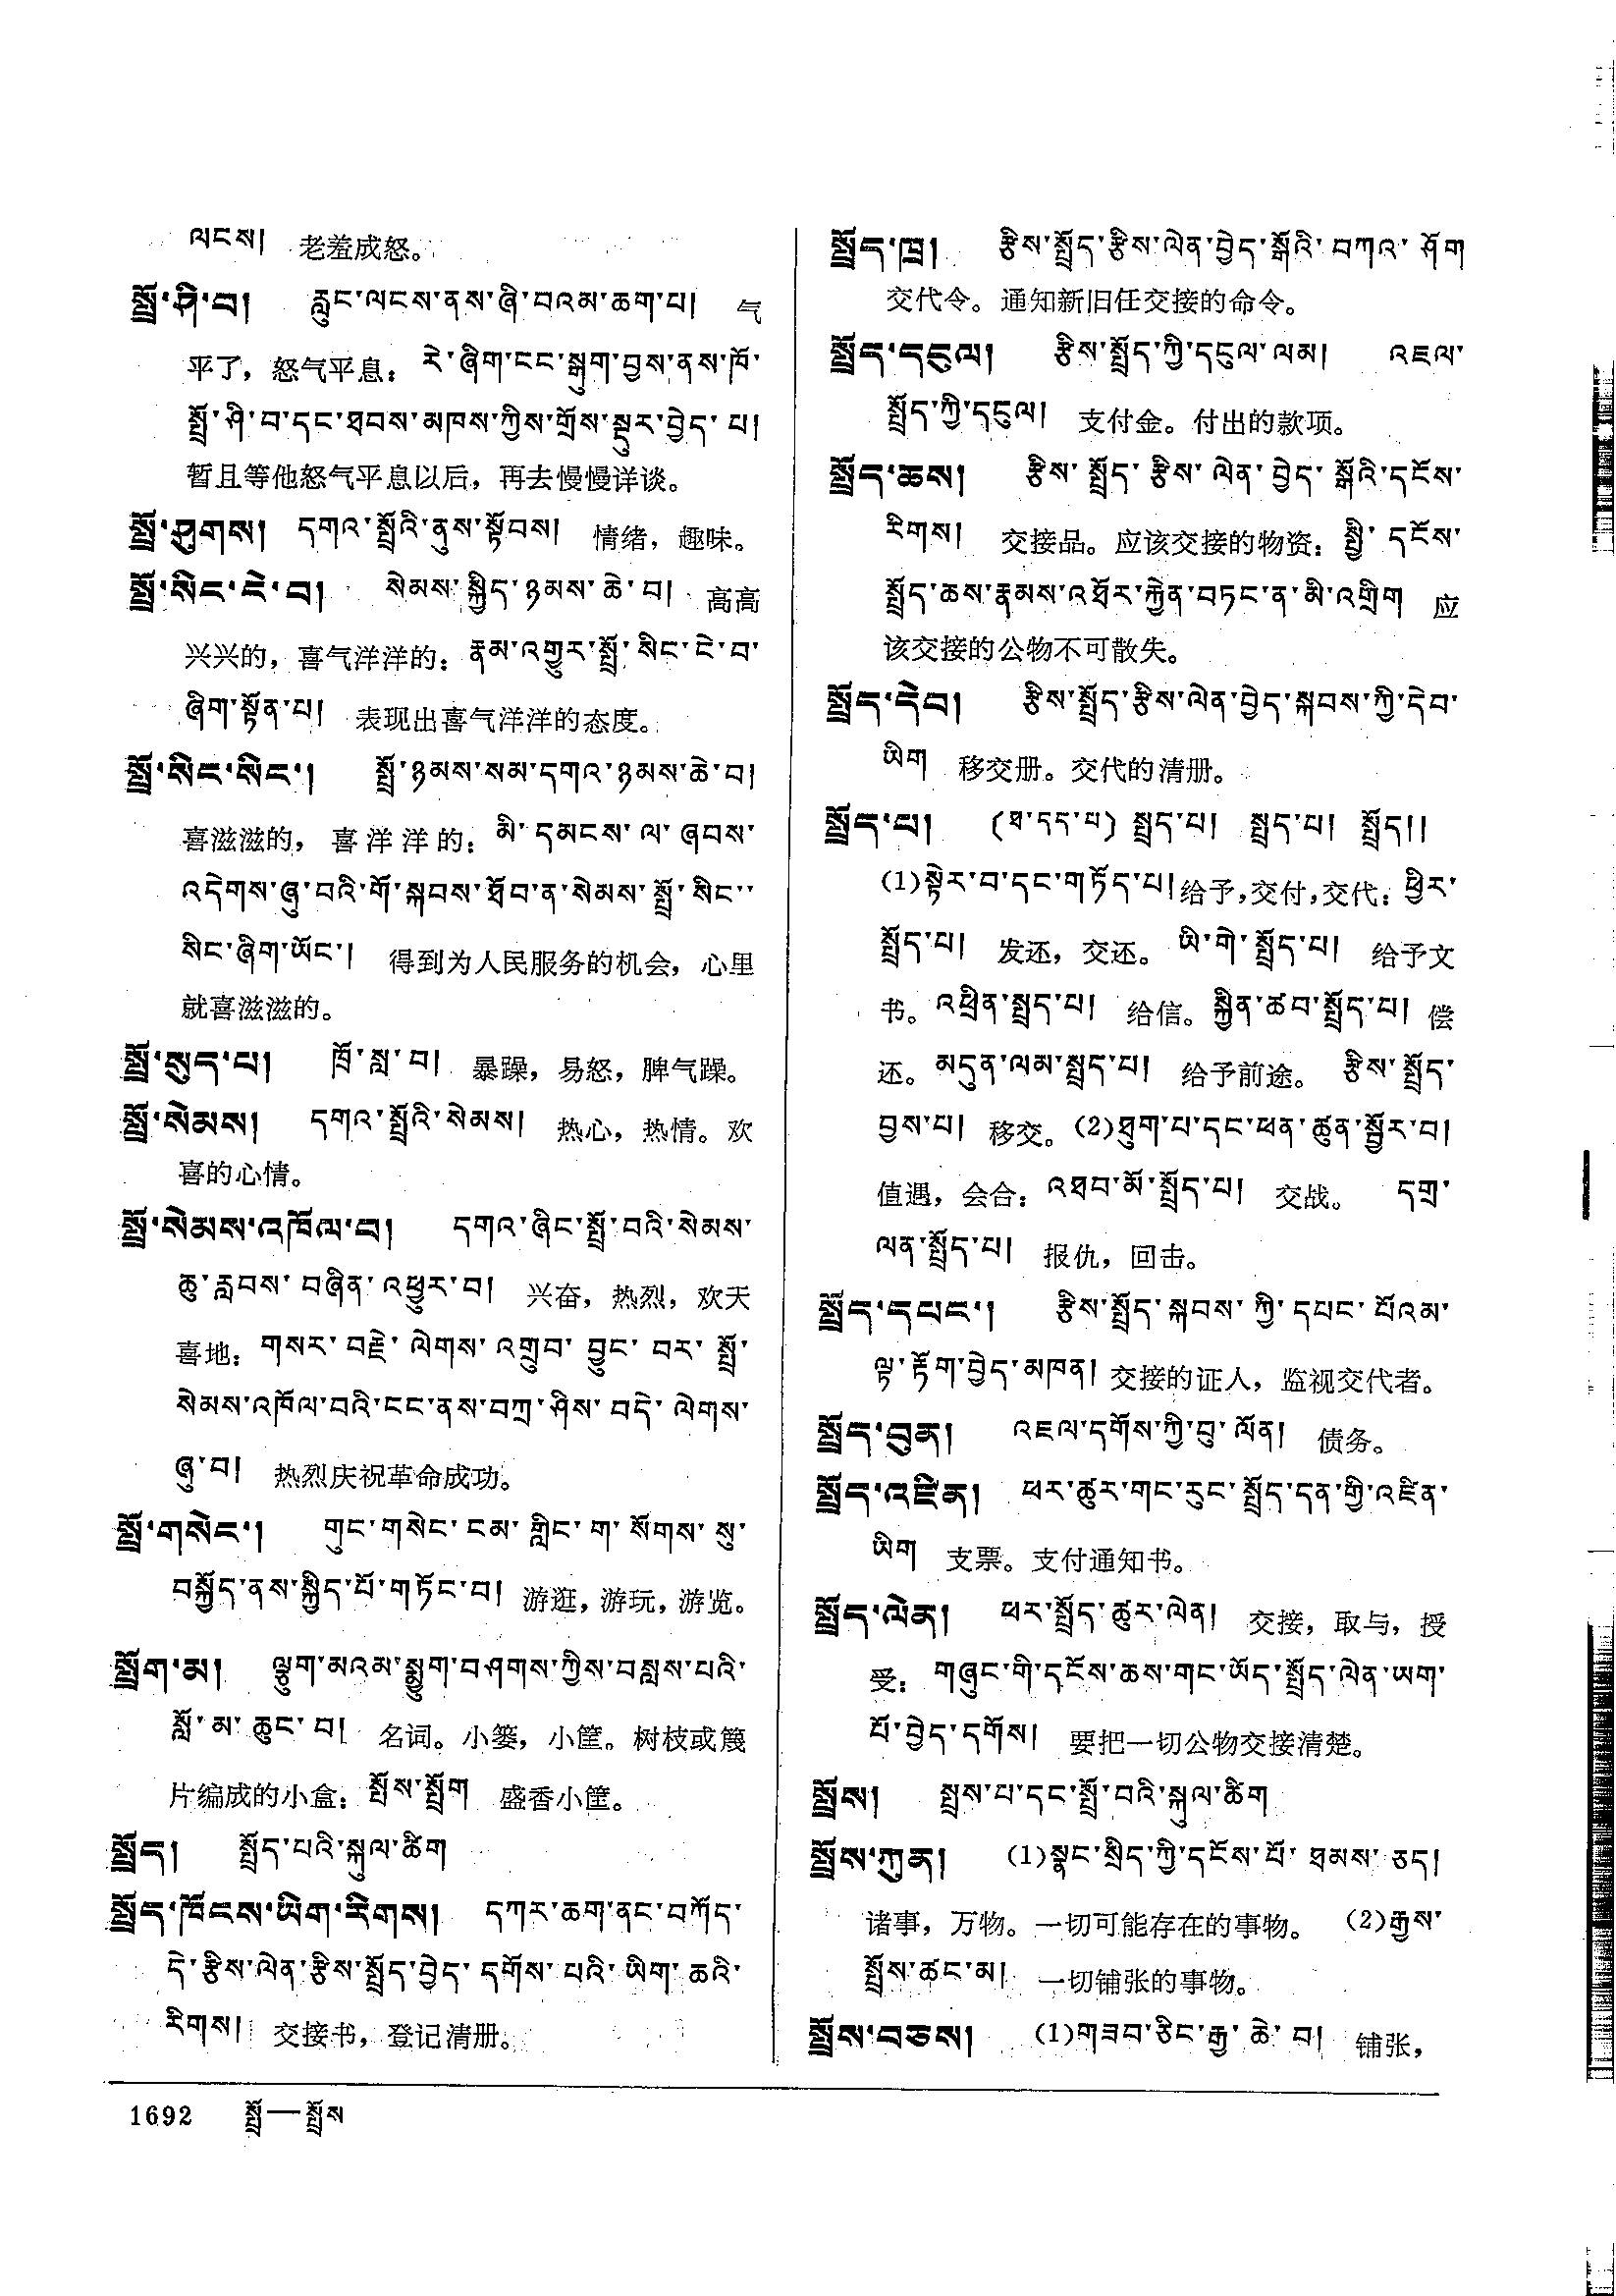 ལངས། 老羞成怒。
སྤྲོ་ཤི་བ། རླུང་ལངས་ནས་ཞི་བའམ་ཆག་པ། 气
平了，怒气平息：རེ་ཞིག་ངང་སྒུག་བྱས་ནས་ཁོ་
སྤྲོ་ཤི་བ་དང་ཐབས་མཁས་ཀྱིས་གྲོས་སྡུར་བྱེད་པ།
暂且等他怒气平息以后，再去慢慢详谈。
སྤྲོ་ཤུགས། དགའ་སྤྲོའི་ནུས་སྟོབས། 情绪，趣味。
སྤྲོ་སིང་ངེ་བ། སེམས་སྐྱིད་ཉམས་ཆེ་བ། 高高
兴兴的，喜气洋洋的：རྣམ་འགྱུར་སྤྲོ་སིང་ངེ་བ་
ཞིག་སྟོན་པ། 表现出喜气洋洋的态度。
སྤྲོ་སིང་སིང་། སྤྲོ་ཉམས་སམ་དགའ་ཉམས་ཆེ་བ།
喜滋滋的，喜洋洋的：མི་དམངས་ལ་ཞབས་
འདེགས་ཞུ་བའི་གོ་སྐབས་ཐོབ་ན་སེམས་སྤྲོ་སིང་་
སིང་ཞིག་ཡོང་། 得到为人民服务的机会，心里
就喜滋滋的。
སྤྲོ་སུད་པ། ཁྲོ་སླ་བ། 暴躁，易怒，脾气躁。
སྤྲོ་སེམས། དགའ་སྤྲོའི་སེམས། 热心，热情。欢
喜的心情。
སྤྲོ་སེམས་འཁོལ་བ། དགའ་ཞིང་སྤྲོ་བའི་སེམས་
ཆུ་རླབས་བཞིན་འཕྱུར་བ། 兴奋，热烈，欢天
喜地：གསར་བརྗེ་ལེགས་འགྲུབ་བྱུང་བར་སྤྲོ་
སེམས་འཁོལ་བའི་ངང་ནས་བཀྲ་ཤིས་བདེ་ལེགས་
ཞུ་བ། 热烈庆祝革命成功。
སྤྲོ་གསེང་། གུང་གསེང་ངམ་གླིང་ག་སོགས་སུ་
བསྐྱོད་ནས་སྐྱིད་པོ་གཏོང་བ། 游逛，游玩，游览。
སྤྲོག་མ། ལྕུག་མའམ་སྨྱུག་བཤགས་ཀྱིས་བསླས་པའི་
སློ་མ་ཆུང་བ། 名词。小篓，小筐。树枝或篾
片编成的小盒：སྤོས་སྤྲོག 盛香小筐。
སྤྲོད། སྤྲོད་པའི་སྐུལ་ཚིག
སྤྲོད་ཁོངས་ཡིག་རིགས། དཀར་ཆག་ནང་བཀོད་
དེ་རྩིས་ལེན་རྩིས་སྤྲོད་བྱེད་དགོས་པའི་ཡིག་ཆའི་
རིགས། 交接书，登记清册。
སྤྲོད་ཁྲ། རྩིས་སྤྲོད་རྩིས་ལེན་བྱེད་སྒོའི་བཀའ་ཤོག
交代令。通知新旧任交接的命令。
སྤྲོད་དངུལ། རྩིས་སྤྲོད་ཀྱི་དངུལ་ལམ། འཇལ་
སྤྲོད་ཀྱི་དངུལ། 支付金。付出的款项。
སྤྲོད་ཆས། རྩིས་སྤྲོད་རྩིས་ལེན་བྱེད་སྒོའི་དངོས་
རིགས། 交接品。应该交接的物资：སྤྱི་དངོས་
སྤྲོད་ཆས་རྣམས་འཐོར་རྐྱེན་བཏང་ན་མི་འགྲིག 应
该交接的公物不可散失。
སྤྲོད་དེབ། རྩིས་སྤྲོད་རྩིས་ལེན་བྱེད་སྐབས་ཀྱི་དེབ་
ཡིག 移交册。交代的清册。
སྤྲོད་པ། (ཐ་དད་པ) སྤྲད་པ། སྤྲད་པ། སྤྲོད།།
(1)སྟེར་བ་དང་གཏོད་པ།给予，交付，交代：ཕྱིར་
སྤྲོད་པ། 发还，交还。ཡི་གེ་སྤྲོད་པ། 给予文
书。འཕྲིན་སྤྲད་པ། 给信。སྐྱིན་ཚབ་སྤྲོད་པ། 偿
还。མདུན་ལམ་སྤྲད་པ། 给予前途。རྩིས་སྤྲོད་
བྱས་པ། 移交。(2)ཐུག་པ་དང་ཕན་ཚུན་སྦྱོར་བ།
值遇，会合：འཐབ་མོ་སྤྲོད་པ། 交战。དགྲ་
ལན་སྤྲོད་པ། 报仇，回击。
སྤྲོད་དཔང་། རྩིས་སྤྲོད་སྐབས་ཀྱི་དཔང་པོའམ་
ལྟ་རྟོག་བྱེད་མཁན། 交接的证人，监视交代者。
སྤྲོད་བུན། འཇལ་དགོས་ཀྱི་བུ་ལོན། 债务。
སྤྲོད་འཛིན། ཕར་ཚུར་གང་རུང་སྤྲོད་དན་གྱི་འཛིན་
ཡིག 支票。支付通知书。
སྤྲོད་ལེན། ཕར་སྤྲོད་ཚུར་ལེན། 交接，取与，授
受：གཞུང་གི་དངོས་ཆས་གང་ཡོད་སྤྲོད་ལེན་ཡག་
པོ་བྱེད་དགོས། 要把一切公物交接清楚。
སྤྲོས། སྤྲས་པ་དང་སྤྲོ་བའི་སྐུལ་ཚིག
སྤྲོས་ཀུན། (1)སྣང་སྲིད་ཀྱི་དངོས་པོ་ཐམས་ཅད།
诸事，万物。一切可能存在的事物。(2)རྒྱས་
སྤྲོས་ཚང་མ། 一切铺张的事物。
སྤྲོས་བཅས། (1)གཟབ་ཅིང་རྒྱ་ཆེ་བ། 铺张，
1692 སྤྲོ—སྤྲོས